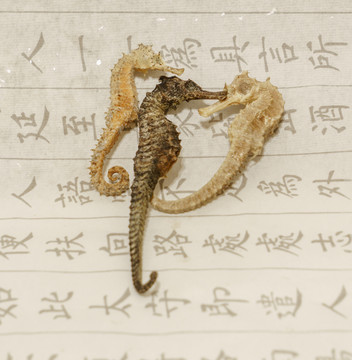 人一一為具言所
延至出酒
人語不為外
便扶向路處處志
如此太守即遣人